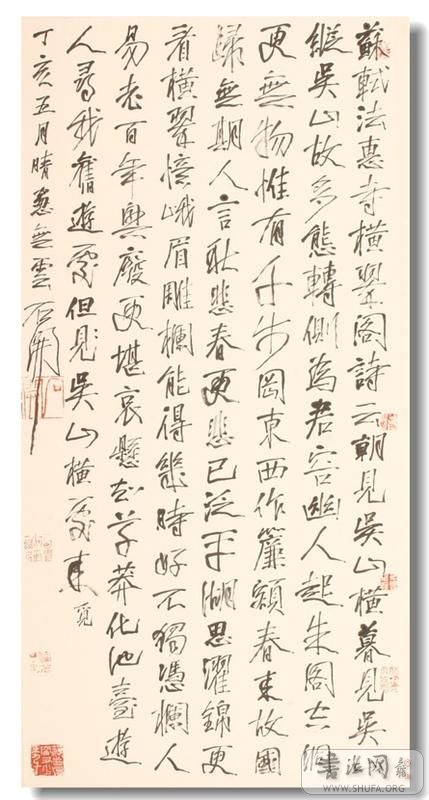 蘇軾法惠寺橫翠閣詩云朝見吳山橫暮見吳
縱吳山故多態轉側為君容幽人起朱閣空洞
更無物惟有千步岡東西作簾額春來故國
歸無期人言秋悲春更悲已泛平湖思濯錦更
看橫翠憶峨眉雕欄能得幾時好不獨憑欄人
易老百年興廢更堪哀懸知草莽化池臺遊
人尋我舊遊處但見吳山橫處來 覓
丁亥五月晴窗無雲 石開
书法网
WWW.SHUFA.ORG